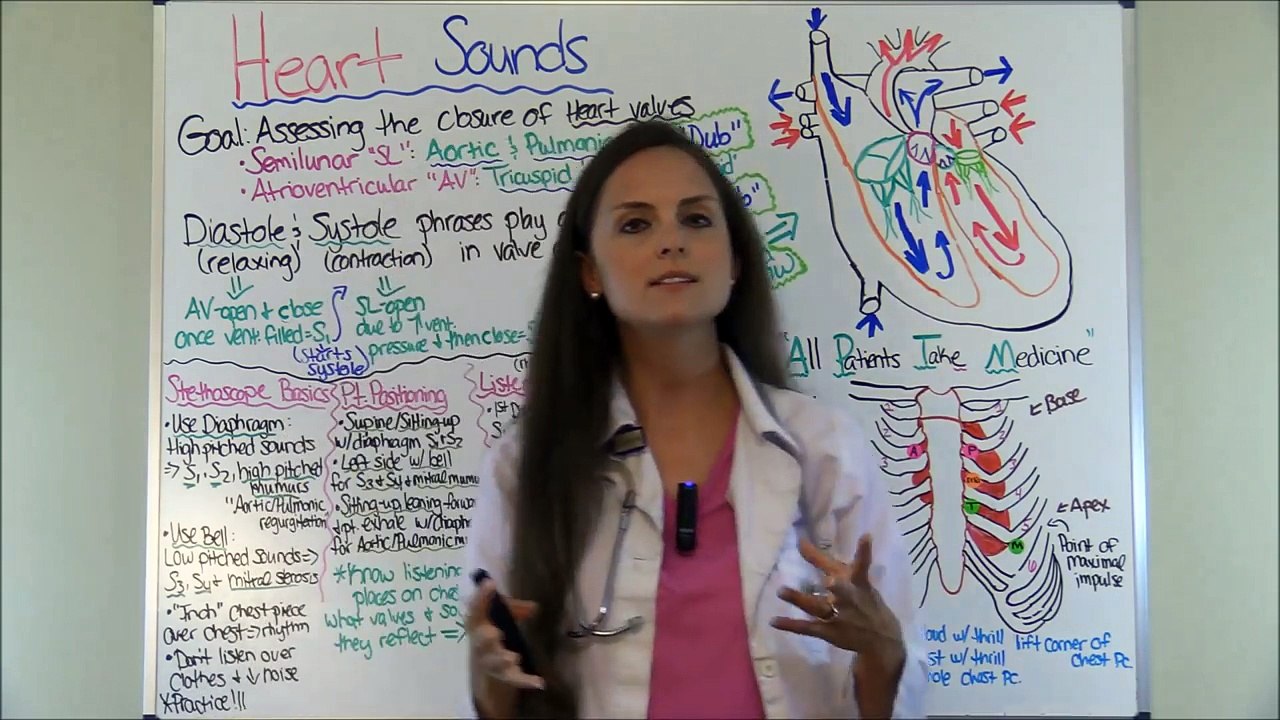 Heart Sounds
Goal: Assessing the closure of Heart valves
• Semilunar "SL": Aortic & Pulmonic "Dub"
• Atrioventricular "AV": Tricuspid
Diastole & Systole phrases play
(relaxing) (contraction) in valve
AV-open & close
once vent. filled=S1
(starts systole)
SL-open
due to ↑ vent.
pressure & then close=
Stethoscope Basics
• Use Diaphragm:
High pitched sounds
⇒ S1, S2, high pitched
murmurs
"Aortic/Pulmonic
regurgitation
• Use Bell:
Low pitched sounds ⇒
S3, S4 & mitral stenosis
• "Inch" chest piece
over chest ⇒ rhythm
• Don't listen over
clothes & ↓ noise
*Practice!!!
Pt Positioning
• Supine/Sitting-up
w/diaphragm S1+S2
• Left side w/ bell
for S3 & S4 & mitral
• Sitting-up leaning-forward
& pt exhale w/
for Aortic/Pulmonic
*Know listening
places on
what valves &
they reflect ⇒
"All Patients Take Medicine"
Base
A
P
T
M
Apex
Point of
maximal
impulse
w/ thrill
w/ thrill
chest pc.
lift corner of
chest pc.